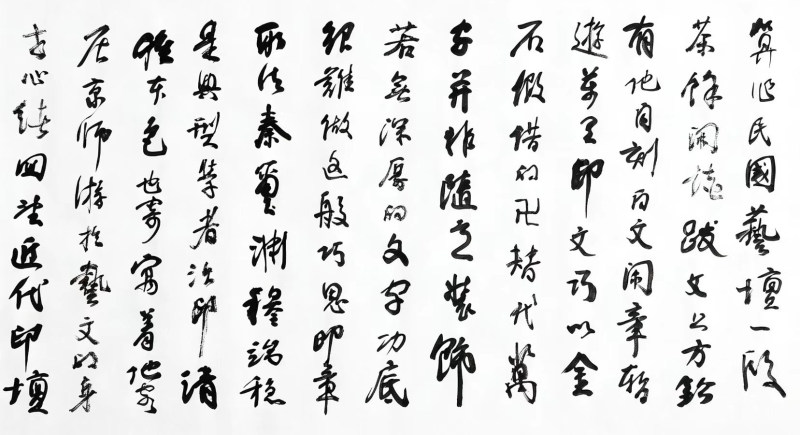 算作民國藝壇一段
茶餘閒話跋文上方鈐
有他自刻白文閒章暫
遊萬里印文巧以金
石假借的卍替代萬
字并非隨意裝飾
若無深厚的文字功底
很難做这般巧思印章
取法秦璽渊穆端穩
是典型學者治印清
雅本色也寄寓着他客
居京師游於藝文的身
世心緒回望近代印壇